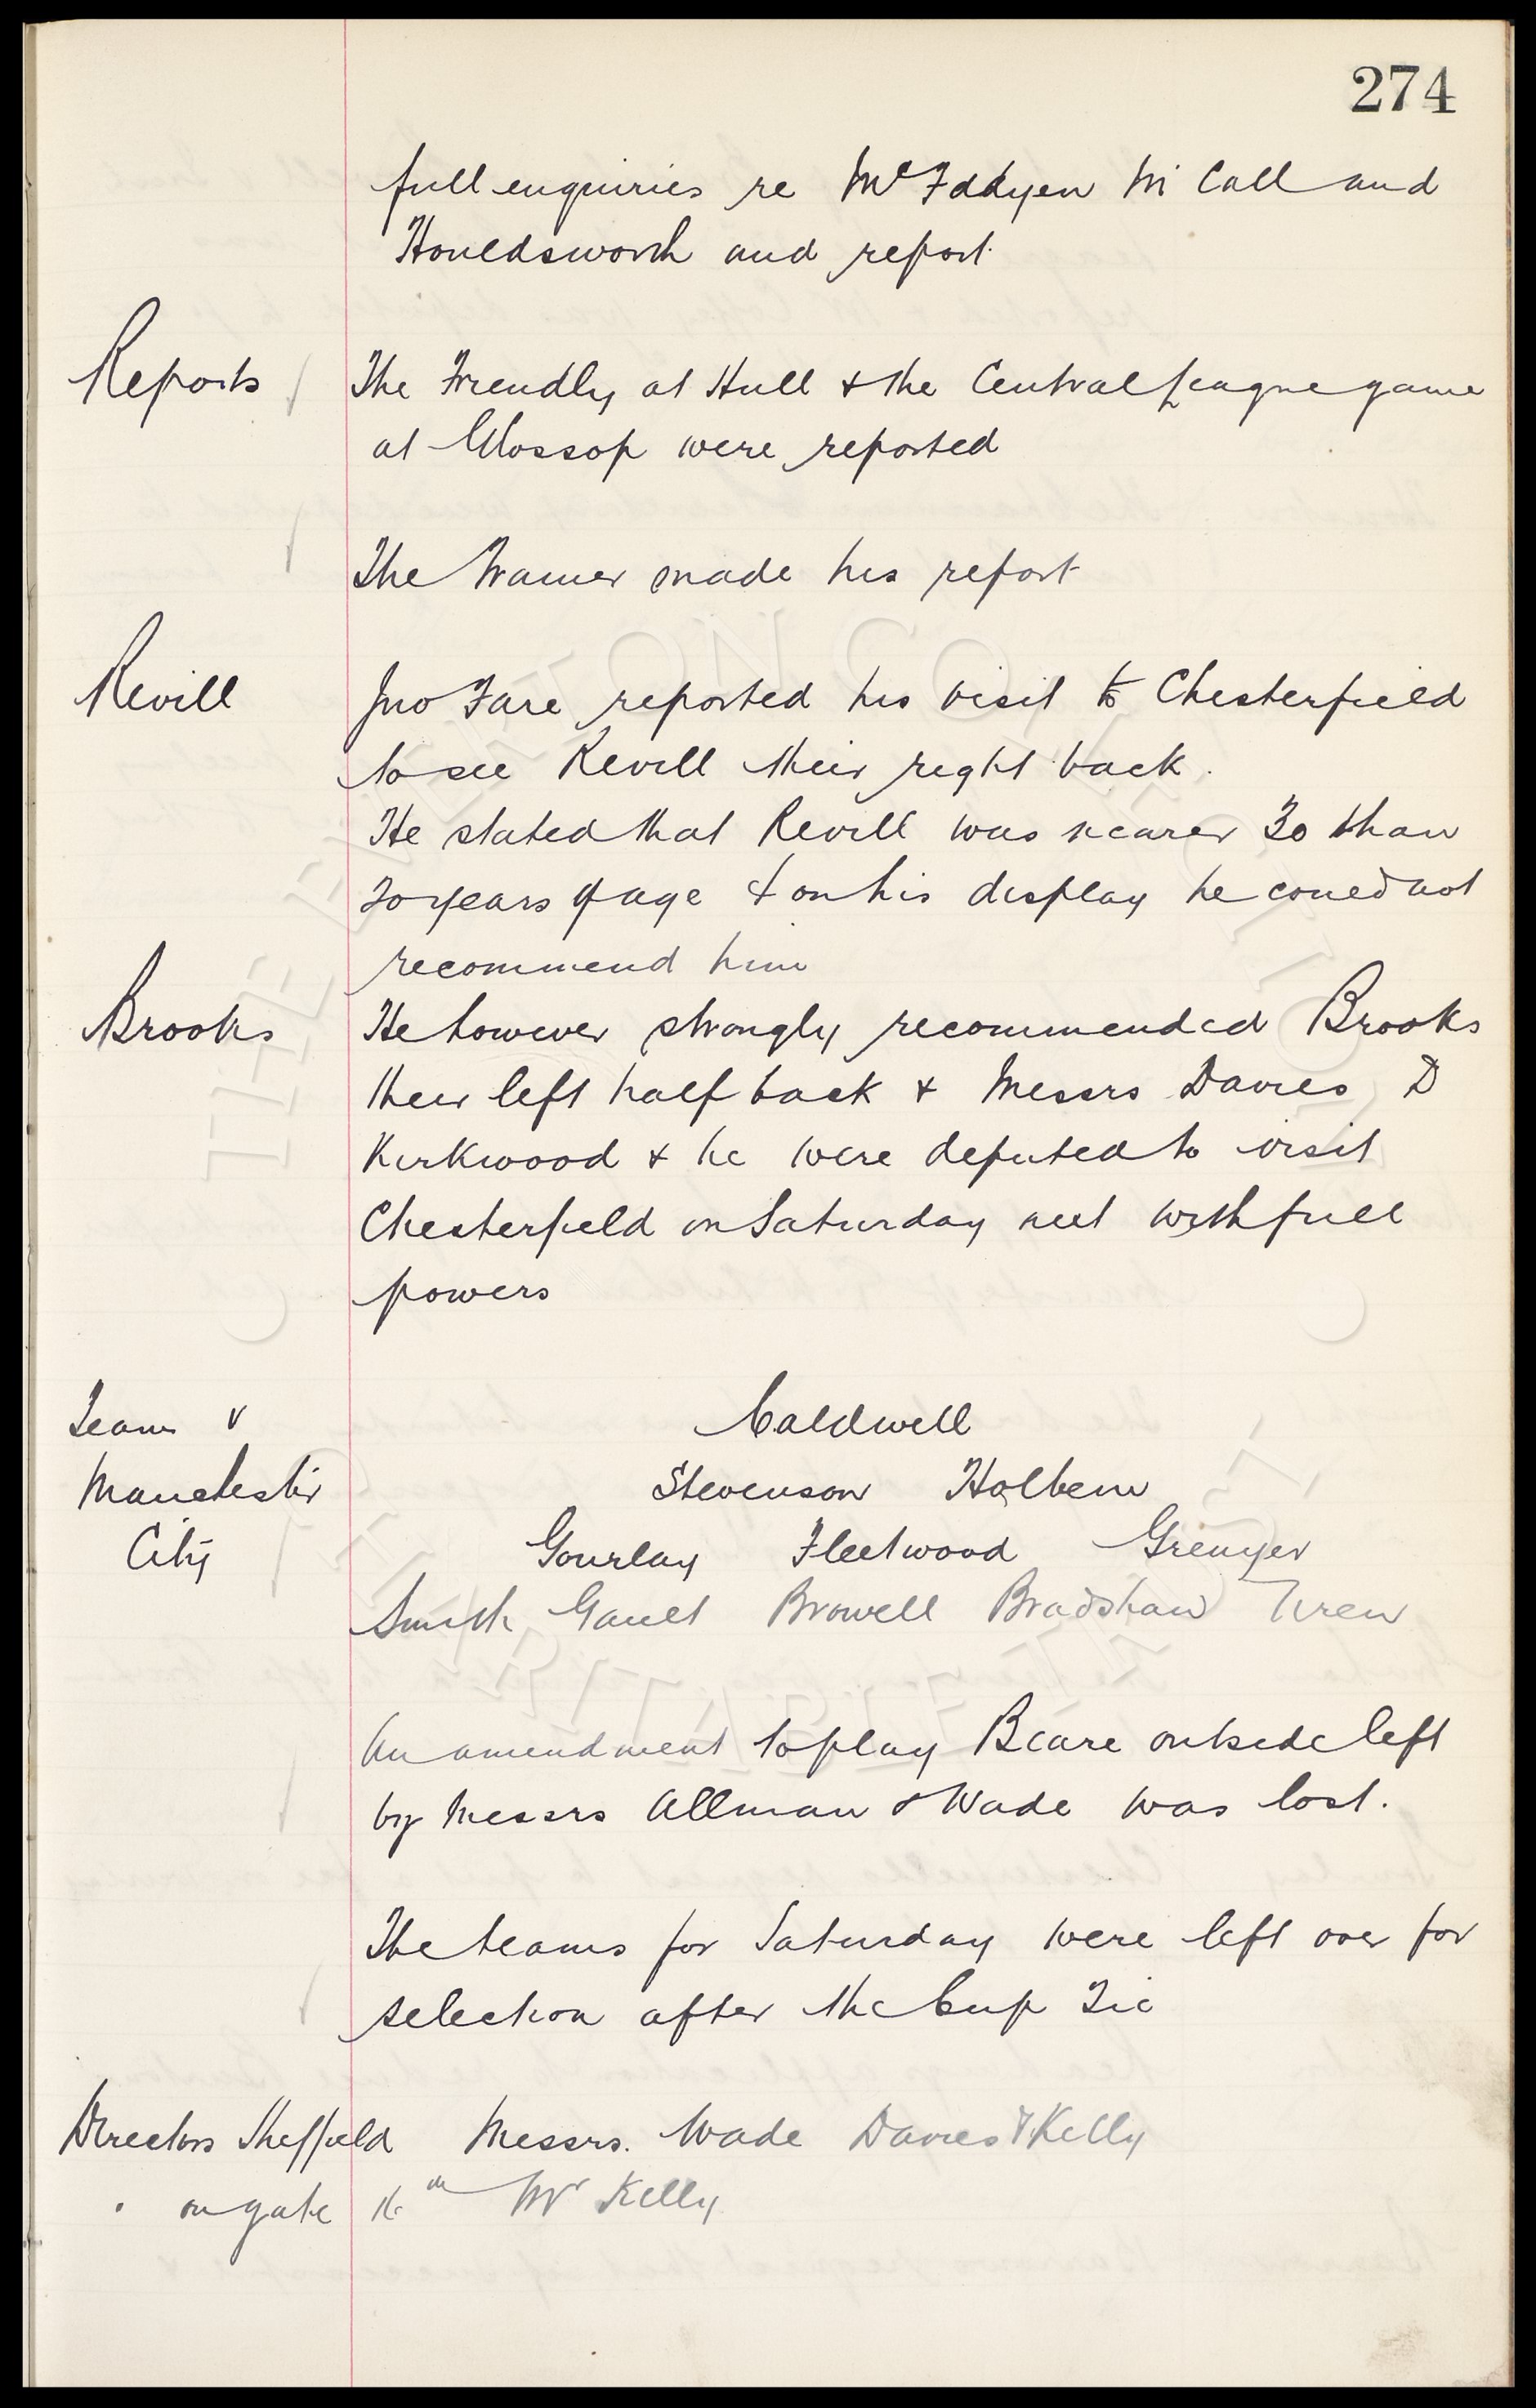 274
full enquiries re McFadyen Mc Call and
Houldsworth and report
Reports The Friendly at Hull & the Central League game
at Glossop were reported
The Trainer made his report
Revill Jno Fare reported his visit to Chesterfield
to see Revill their right back.
He stated that Revill was nearer 30 than
20 years of age & on his display he could not
recommend him
Brooks He however strongly recommended Brooks
their left half back & Messrs Davies, D
Kirkwood & he were deputed to visit
Chesterfield on Saturday next with full
powers
Team v Caldwell
Manchester Stevenson Holbem
City Gourlay Fleetwood Grenyer
Smith Gault Browell Bradshaw Uren
An amendment to play Beare outside left
by Messrs Allman & Wade was lost.
The teams for Saturday were left over for
selection after the Cup Tie
Directors Sheffield Messrs. Wade Davies & Kelly
" on gate Mr Kelly